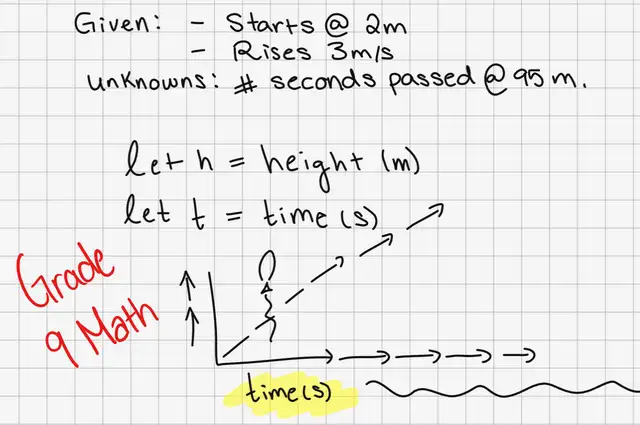 Given: - Starts @ 2m
- Rises 3m/s
unknowns: # seconds passed @ 95 m.
let h = height (m)
let t = time (s)
Grade
9 Math
time (s)